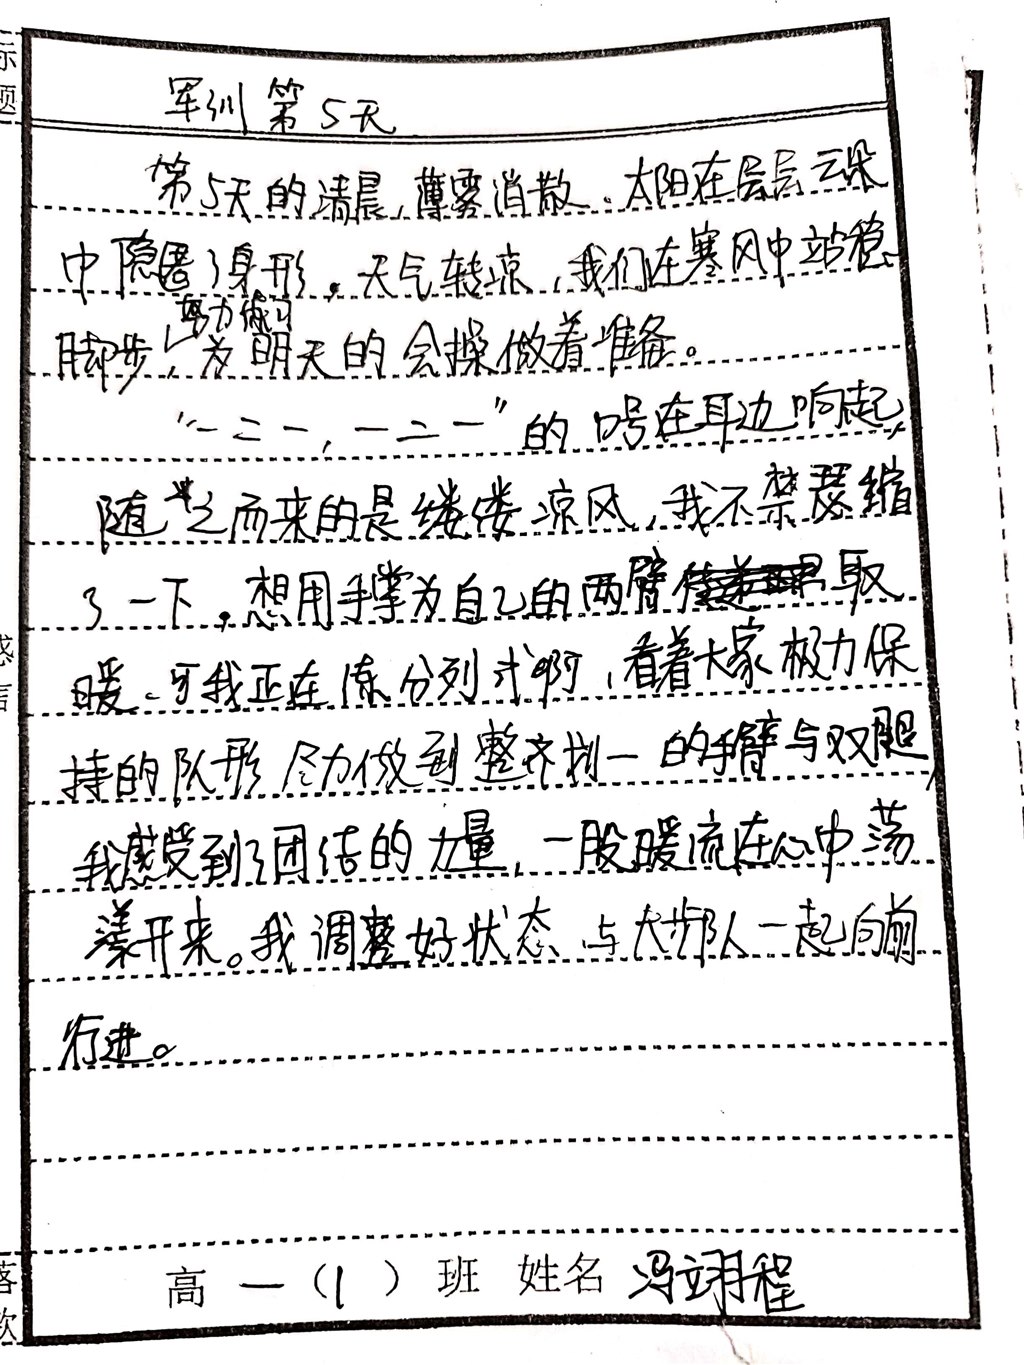 标题
军训第5天
第5天的清晨,薄雾消散.太阳在层层云朵
中隐匿了身形。天气转凉,我们在寒风中站稳
努力练习
脚步,为明天的会操做着准备。
“一二一,一二一”的口号在耳边响起,
随之而来的是缕缕凉风,我不禁瑟缩
了一下。想用手掌为自己的两臂取
暖.可我正在练分列式啊,看着大家极力保
持的队形 尽力做到整齐划一的手臂与双腿,
我感受到了团结的力量,一股暖流在心中荡
漾开来。我调整好状态 与大步队一起向前
行进。
感言
高一(1)班 姓名 冯翊程
落款